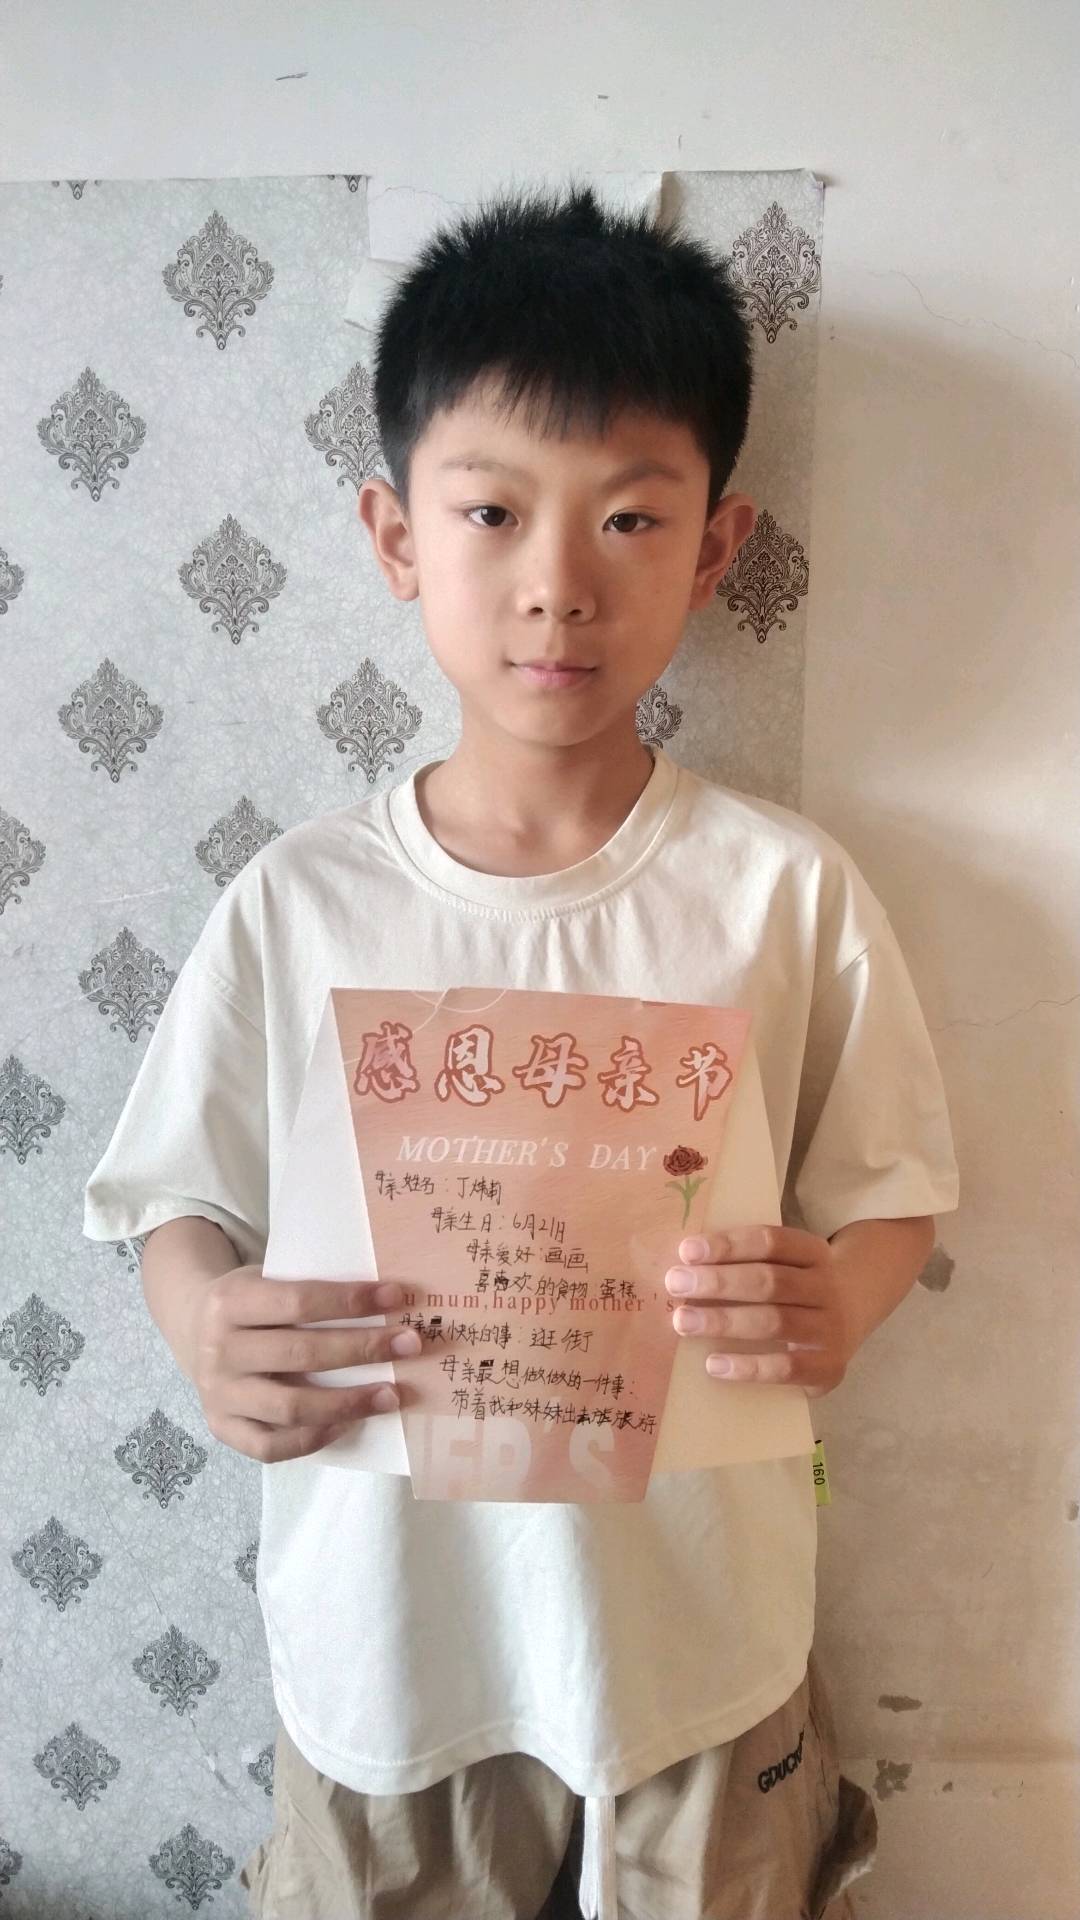 感恩母亲节
MOTHER'S DAY
母亲姓名：丁炜莉
母亲生日：6月21日
母亲爱好：画画
喜欢的食物：蛋糕
u mum,happy mother's
母亲最快乐的事：逛街
母亲最想做做的一件事：
带着我和妹妹出去旅旅游
HER'S
160
GDUCK